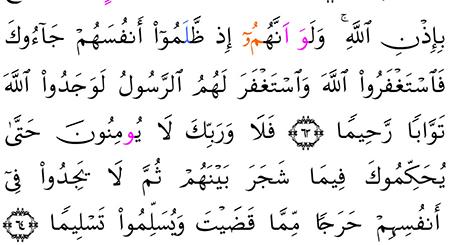 بِإِذْنِ ٱللَّهِۚ وَلَوَ اَنَّهُمُۥٓ إِذ ظَّلَمُوٓا۟ أَنفُسَهُمْ جَآءُوكَ
فَٱسْتَغْفَرُوا۟ ٱللَّهَ وَٱسْتَغْفَرَ لَهُمُ ٱلرَّسُولُ لَوَجَدُوا۟ ٱللَّهَ
تَوَّابًا رَّحِيمًا ٦٣ فَلَا وَرَبِّكَ لَا يُومِنُونَ حَتَّىٰ
يُحَكِّمُوكَ فِيمَا شَجَرَ بَيْنَهُمْ ثُمَّ لَا يَجِدُوا۟ فِىٓ
أَنفُسِهِمْ حَرَجًا مِّمَّا قَضَيْتَ وَيُسَلِّمُوا۟ تَسْلِيمًا ٦٤